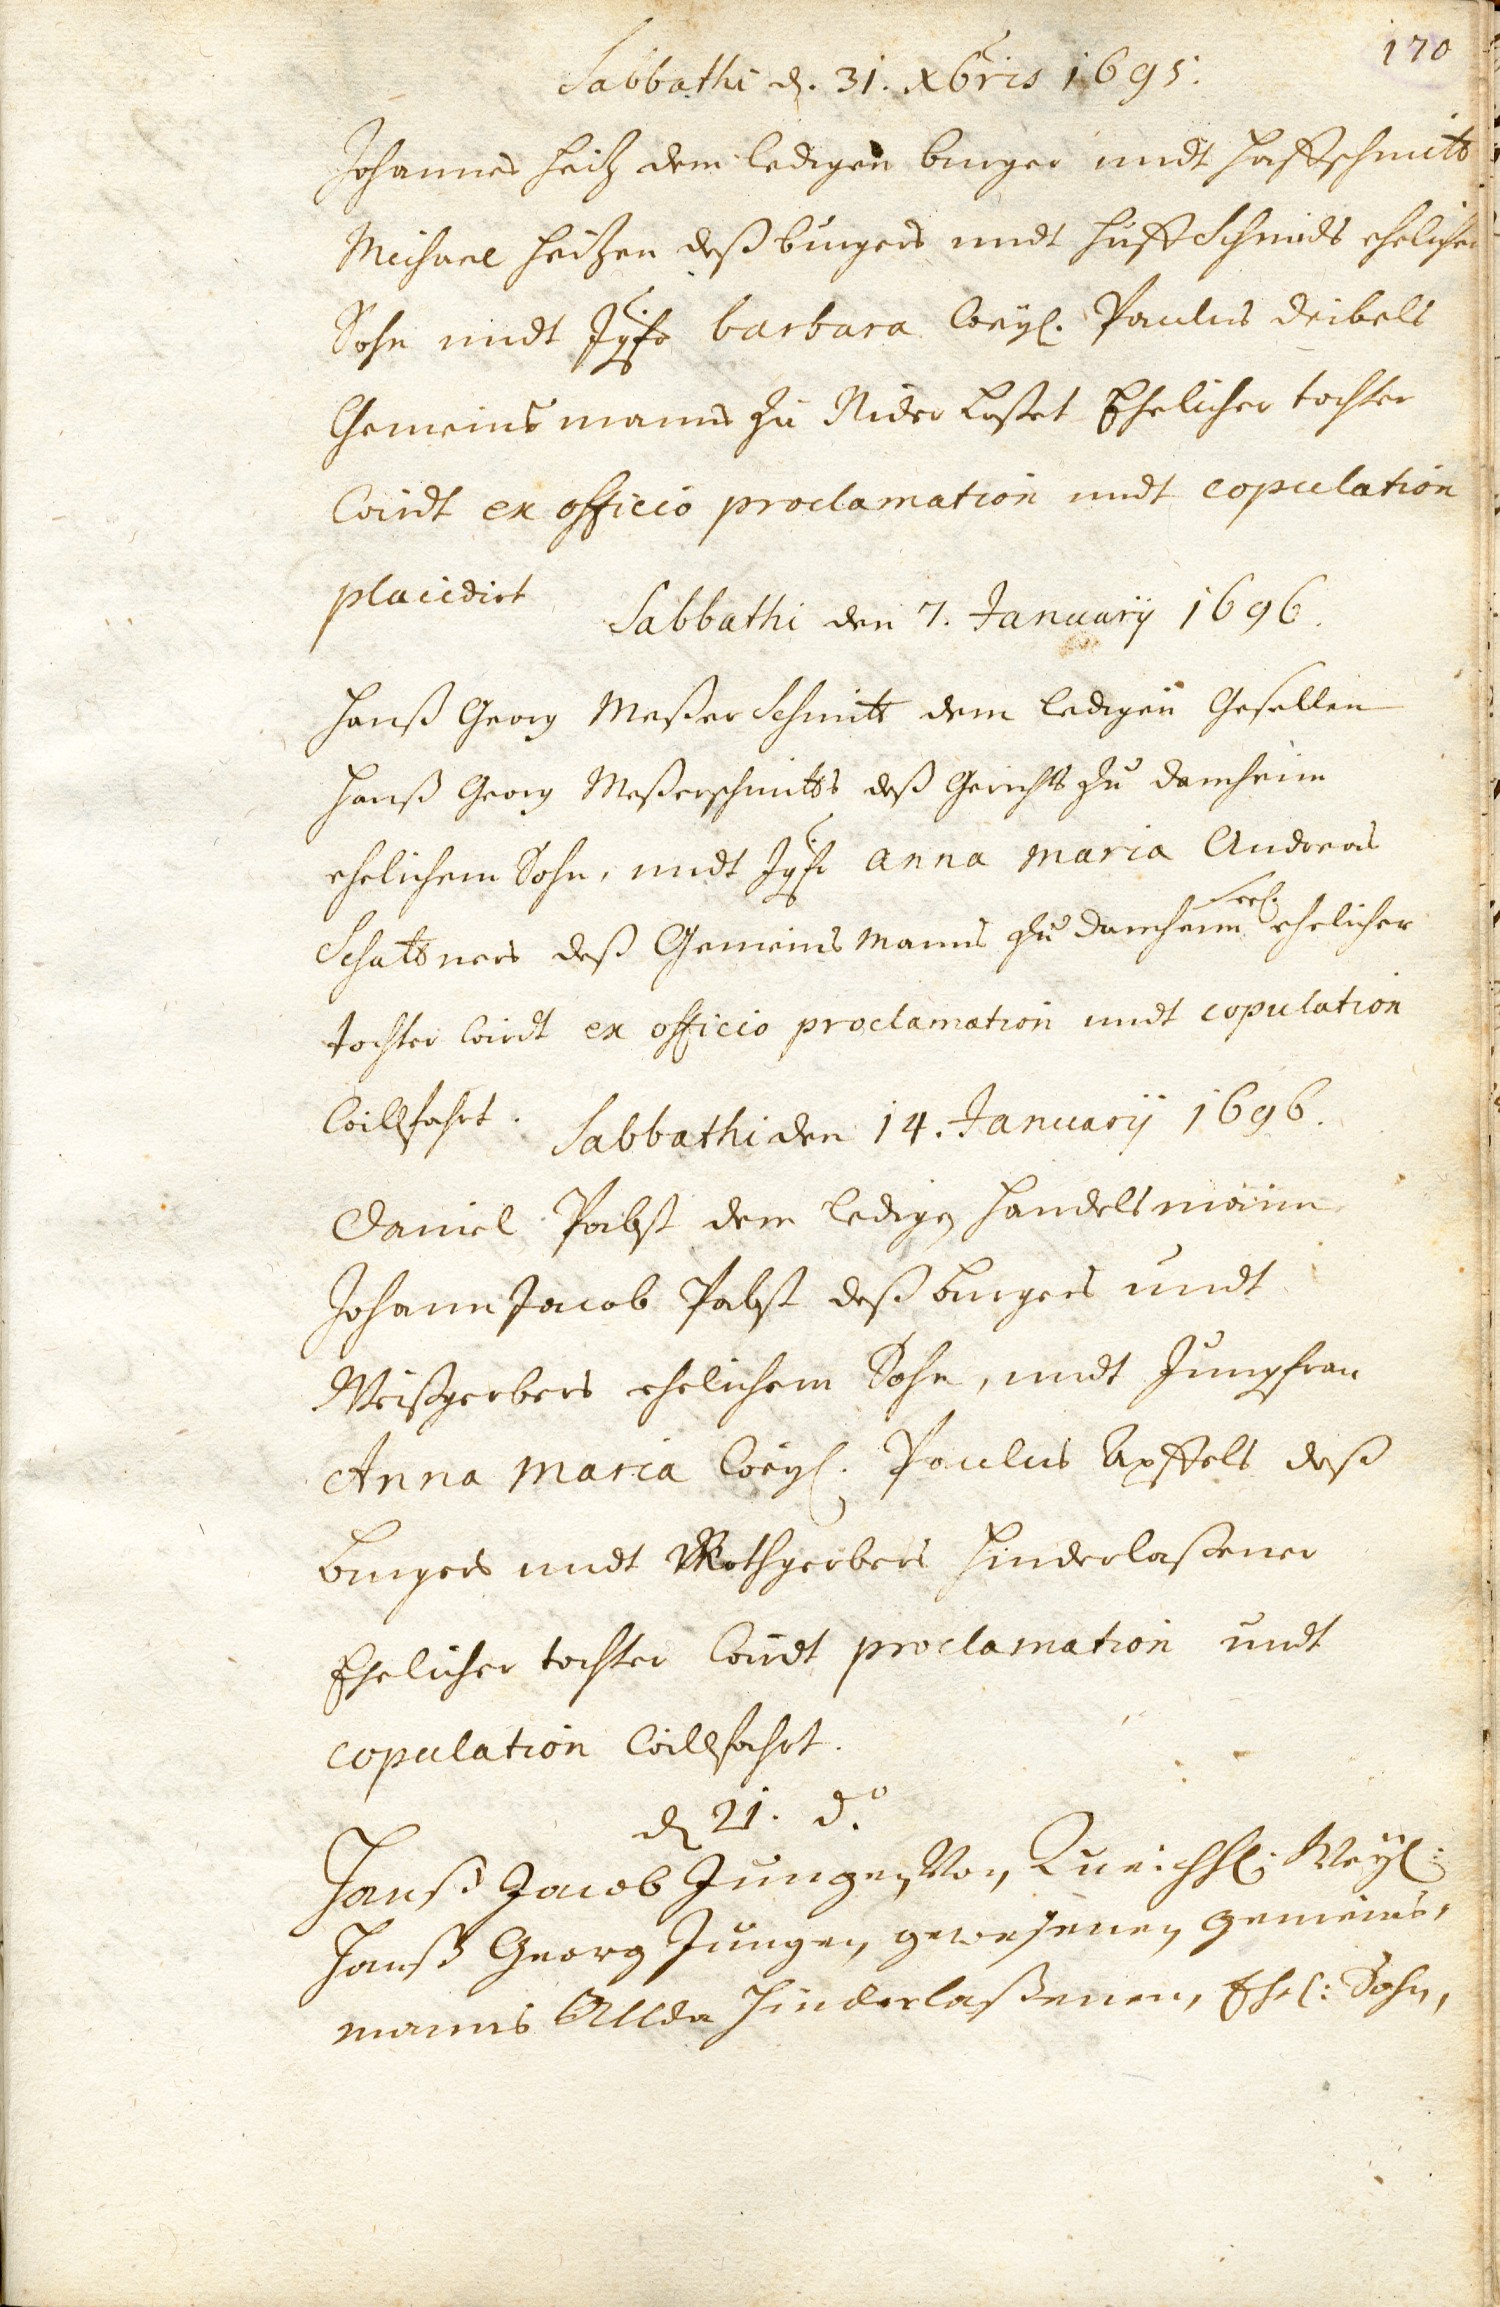 170
Sabbathi d. 31. Xbris 1695.
Johannes Heitz dem ledigen burger undt huffschmitt
Michael Heitzen deß burgers undt huff Schmids ehelichen
Sohn undt Jgfr. barbara weyl. Paulus Deibels
Gemeins manns zu Nider Ehelicher tochter
wirdt ex officio proclamation undt copulation
placidirt
Sabbathi den 7. Januarÿ 1696.
Hanß Georg Meßer Schmitt dem ledigen Gesellen
Hanß Georg Meßerschmitts deß Gerichts zu Damheim
ehelichem Sohn, undt Jgfr. anna maria Andreas
Schattners deß Gemeins Manns zu Damheim Seel. ehelicher
tochter wirdt ex officio proclamation undt copulation
willfahrt.
Sabbathi den 14. Januarÿ 1696.
Daniel Pabst dem ledigen Handelsmann
Johann Jacob Pabst deß burgers undt
Weißgerbers ehelichem Sohn, undt Jungfrau
Anna Maria weyl. Paulus Apffels deß
burgers undt Rothgerbers Hinderlaßener
Ehelicher tochter wirdt proclamation undt
copulation willfahrt.
d. 21. do.
Hanß Jacob Jungen Von Queichh. Weyl:
Hanß Georg Jungen gewesenen gemeins,
manns Allda Hinderlaßenen, Ehel: Sohn,